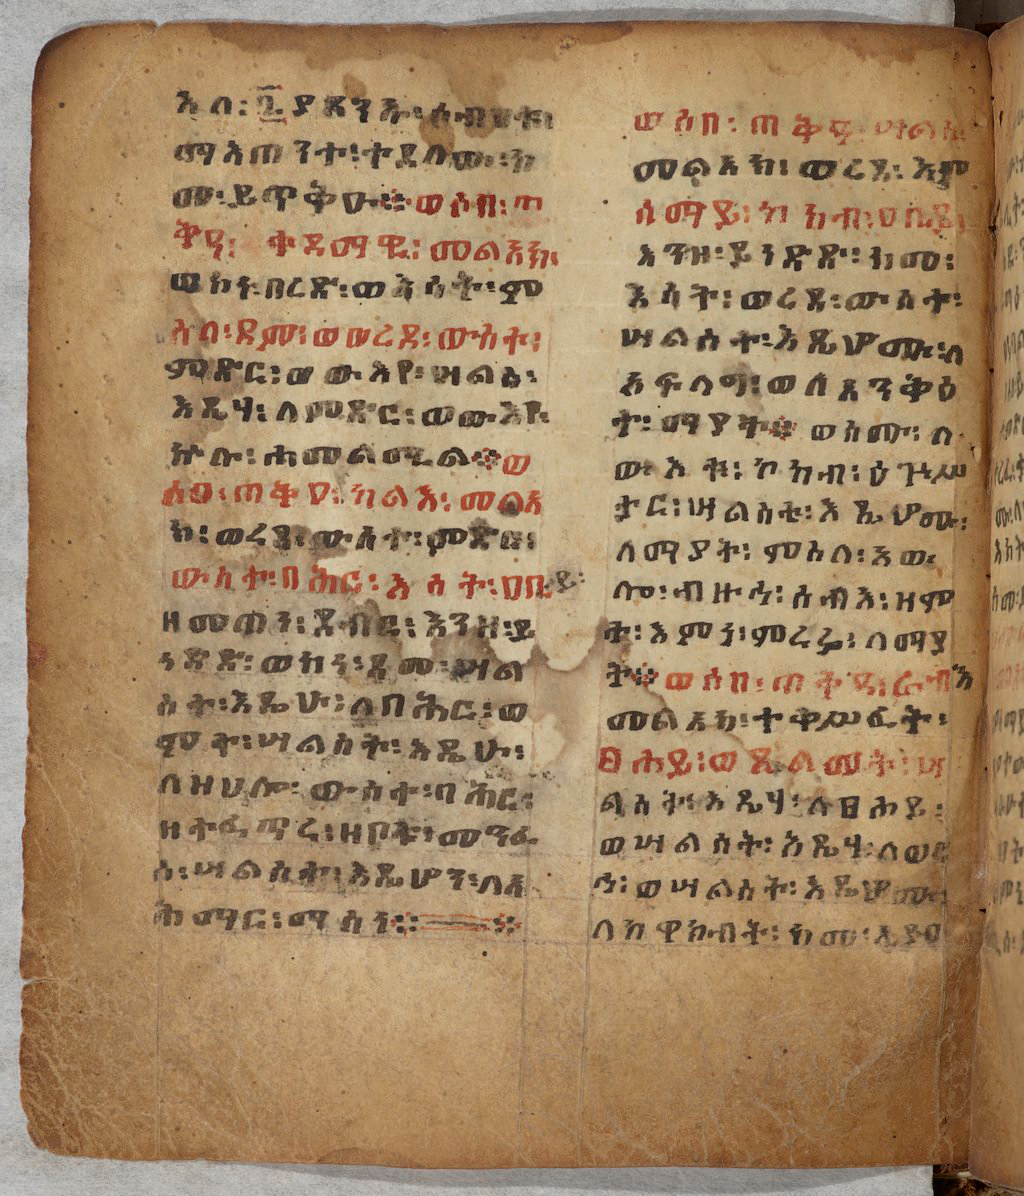 እለ፡ ፬ ያጸንኡ፡ ሰብዓቱ፡
ማእጠንተ፡ ተደለው፡ ከ
መ፡ ይጥቅዑ። ወሰበ፡ ጠ
ቅዓ፡ ቀዳማዊ፡ መልአክ፡
ወኮነ፡ በረድ፡ ወእሳት፡ ም
ስለ፡ ደም፡ ወወረደ፡ ውስተ፡
ምድር፡ ወውእየ፡ ሣልስ፡
እዴሃ፡ ለምድር፡ ወውእየ፡
ኵሉ፡ ሐመልሚል። ወ
ሶበ፡ ጠቅዐ፡ ካልእ፡ መልአ
ክ፡ ወረደ፡ ውስተ፡ ምድር፡
ውስተ፡ በሕር፡ እሳት፡ ዐቢይ፡
ዘመጠነ፡ ደብር፡ እንዘ፡ ይ
ነድድ፡ ወኮነ፡ ደመ፡ ሣል
ስት፡ እዴሁ፡ ለበሕር፡ ወ
ሞተ፡ ሣልስት፡ እዴሁ፡
ለዘሀሎ፡ ውስተ፡ በሕር፡
ዘተፈጥረ፡ ዘቦቱ፡ መንፈ
ስ፡ ሣልስት፡ እዴሆን፡ ለአ
ሕማር፡ ማሰነ።
ወሰበ፡ ጠቅዓ፡ ሣልስ፡
መልአክ፡ ወረደ፡ እም
ሰማይ፡ ኮከብ፡ ዐቢይ፡
እንዘ፡ ይነድድ፡ ከመ፡
እሳት፡ ወረደ፡ ውስተ፡
ሣልስተ፡ እዴሆሙ፡ ለ
አፍላግ፡ ወለአንቅዕ
ተ፡ ማያት። ወስሙ፡ ለ
ውእቱ፡ ኮከብ፡ ዕጕሥ
ታር፡ ሣልስቲ፡ እዴሆሙ፡
ለማያት፡ ምስለ፡ እወ
ሎ፡ ብዙኅ፡ ሰብእ፡ ዘሞ
ተ፡ እምነ፡ ምረሯ፡ ለማያ
ት። ወሰበ፡ ጠቅዓ፡ ራብዕ
መልአክ፡ ተቀሥፈት፡
ፀሐይ፡ ወጸልመት፡ ሣ
ልስት፡ እዴሃ፡ ለፀሐይ፡
ወሣልስት፡ እዴሃ፡ ለወር
ኅ፡ ወሣልስት፡ እዴሆሙ፡
ለከዋክብት፡ ከመ፡ ኢያዐ